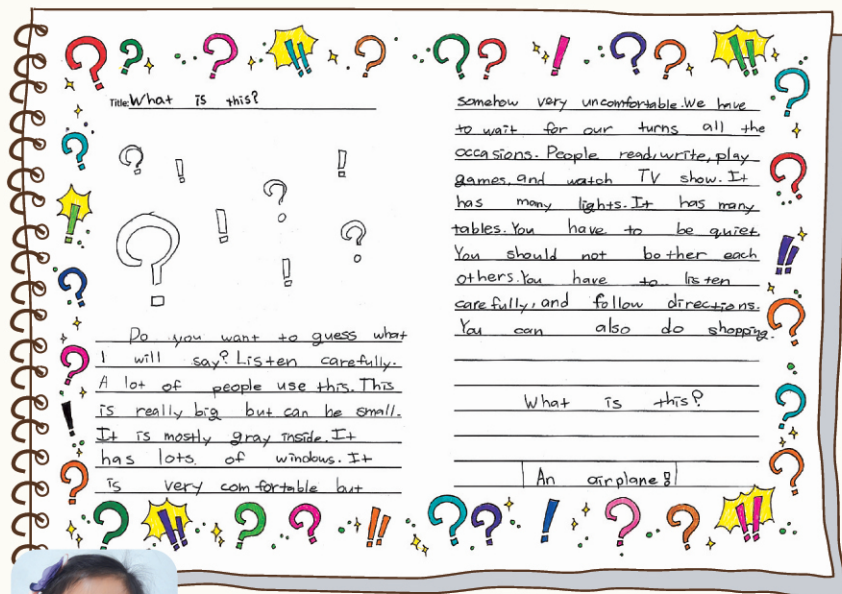 Title: What is this?
Do you want to guess what
I will say? Listen carefully.
A lot of people use this. This
is really big but can be small.
It is mostly gray inside. It
has lots of windows. It
is very comfortable but
somehow very uncomfortable. We have
to wait for our turns all the
occasions. People read, write, play
games, and watch TV show. It
has many lights. It has many
tables. You have to be quiet.
You should not bother each
others. You have to listen
carefully, and follow directions.
You can also do shopping.
What is this?
An airplane!